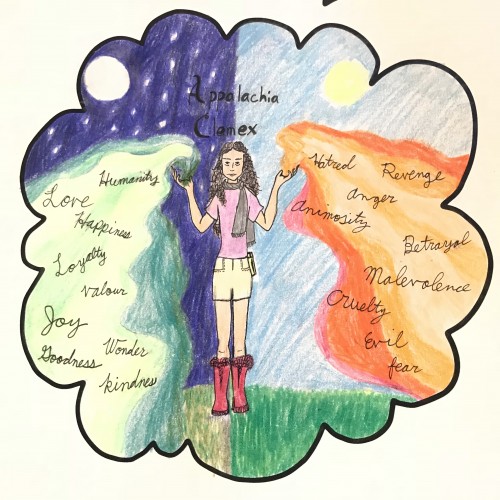 Appalachia
Clemex
Humanity
Love
Happiness
Loyalty
Valour
Joy
Goodness
Wonder
kindness
Hatred
Revenge
Anger
Animosity
Betrayal
Malevolence
Cruelty
Evil
fear